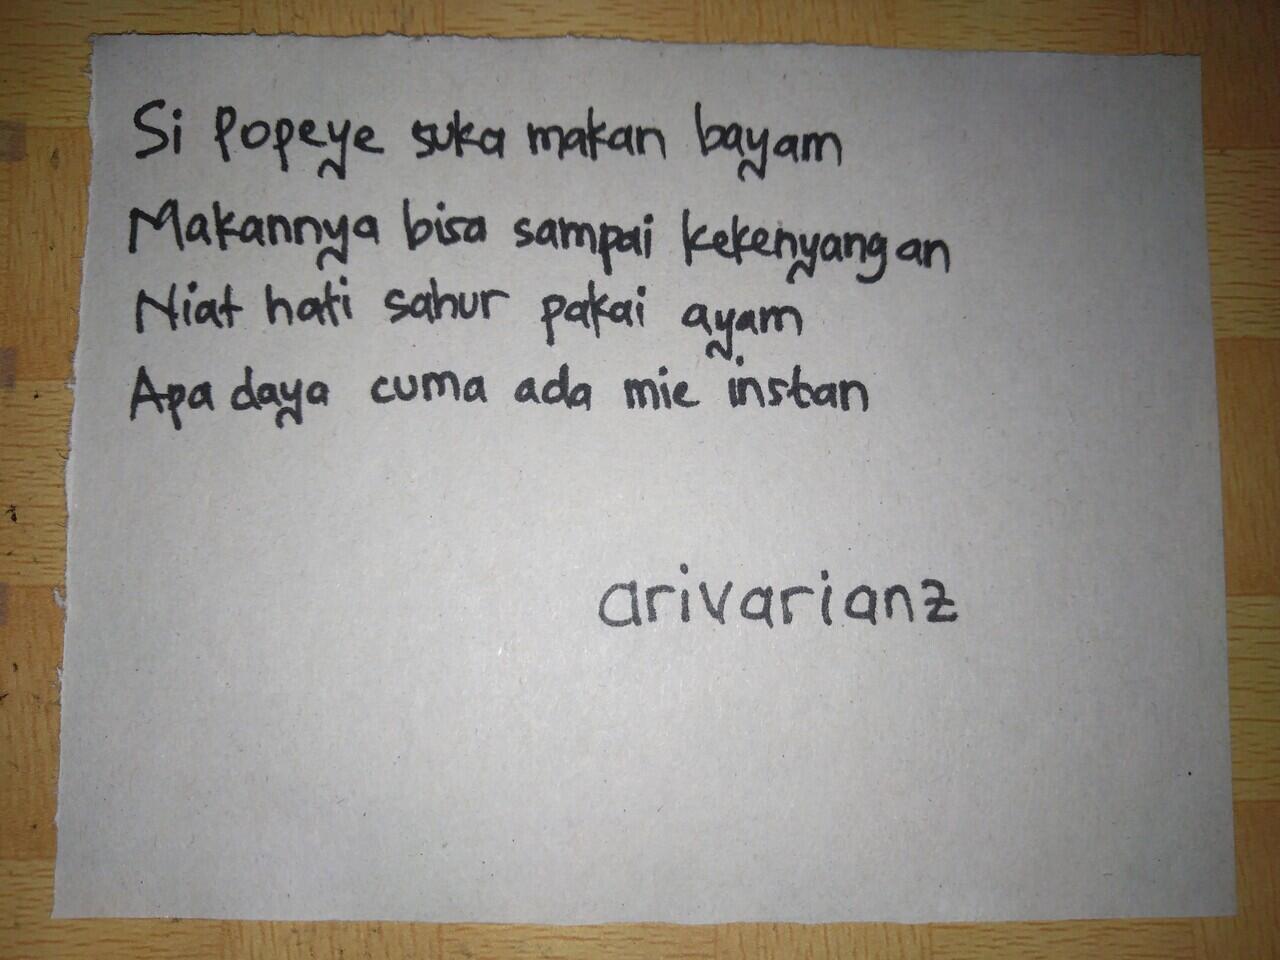 Si Popeye suka makan bayam
Makannya bisa sampai kekenyangan
Niat hati sahur pakai ayam
Apa daya cuma ada mie instan
arivarianz